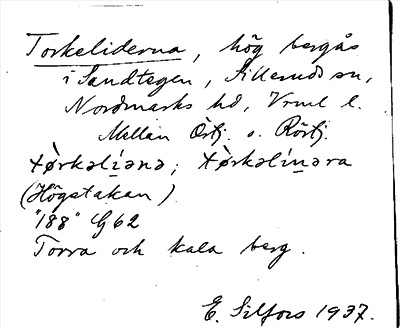 Torkeliderna, hög bergås
i Sandtegen, Sillerud sn,
Nordmarks hd, Vrml l.
Mellan Östj. o. Rörtj.
tòrkəli̱ənə; tòrkəli̱nəra
(Högstakan)
"188" G 62
Torra och kala berg.
E. Silfors 1937.